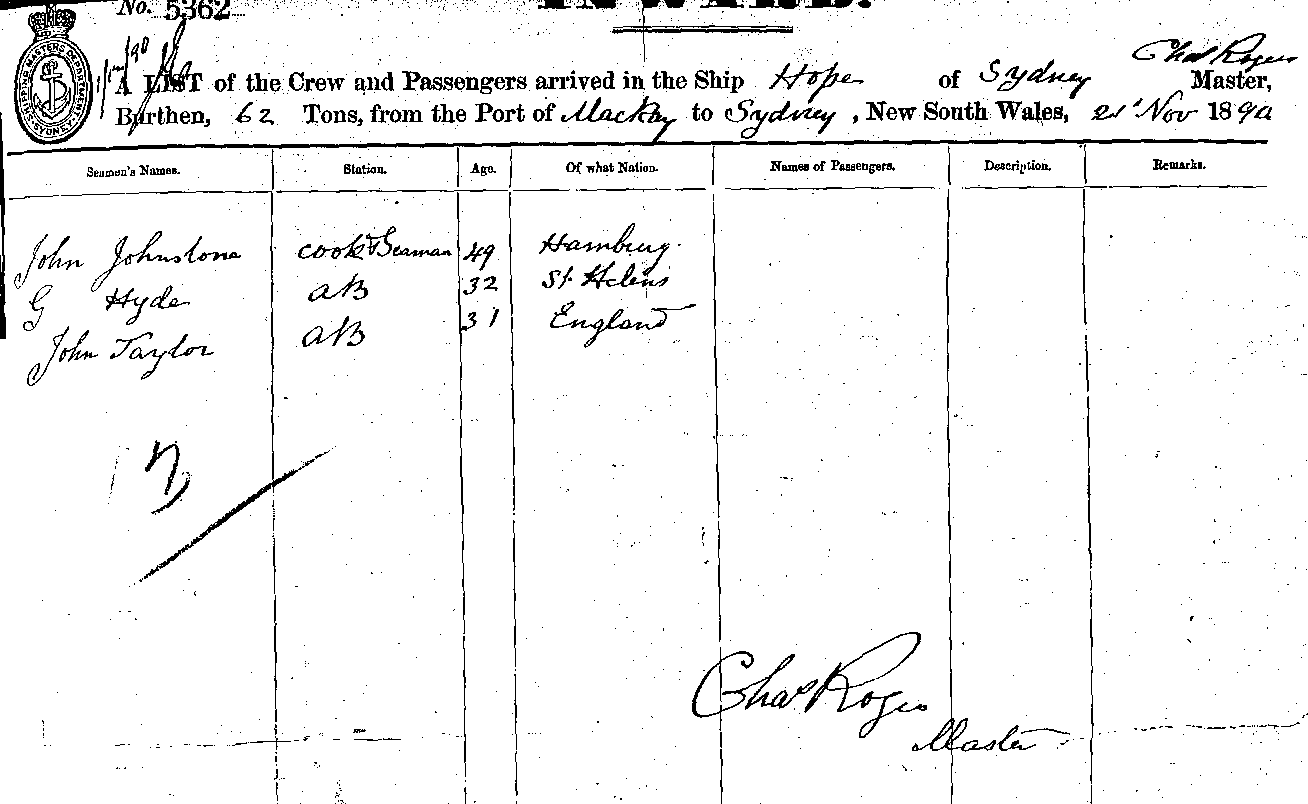 No. 5362
INWARD.
SHIPPING MASTERS DEPARTMENT SYDNEY
Chas Rogers
A LIST of the Crew and Passengers arrived in the Ship Hope of Sydney Master,
Burthen, 62 Tons, from the Port of Mackay to Sydney, New South Wales, 21st Nov 1890
Seamen's Names. Station. Age. Of what Nation. Names of Passengers. Description. Remarks.
John Johnstone cook & Seaman 49 Hamburg.
G Hyde AB 32 St Helens
John Taylor AB 31 England
Chas Rogers
Master